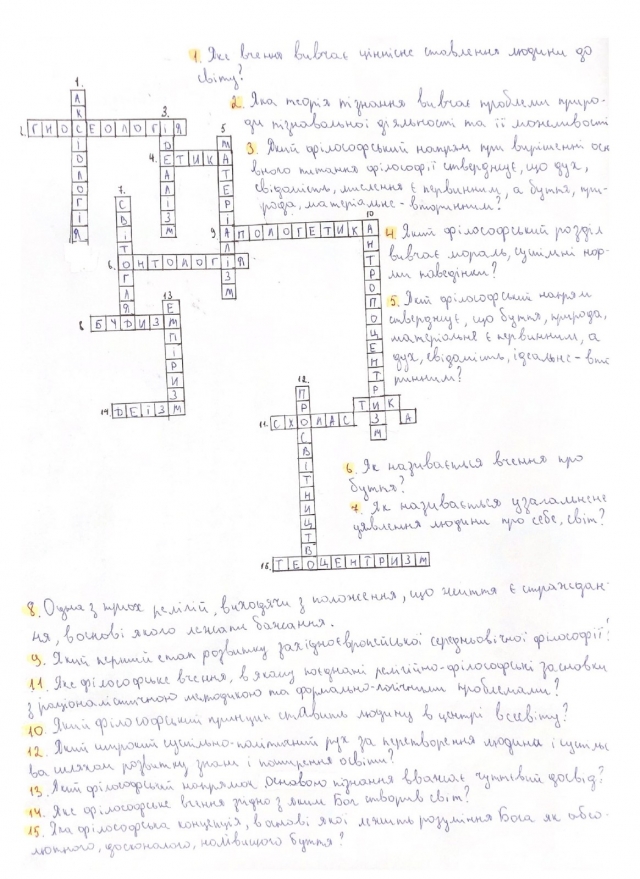 1. Яке вчення вивчає ціннісне ставлення людини до
світу?
2. Яка теорія пізнання вивчає проблеми приро-
ди пізнавальної діяльності та її можливості
3. Який філософський напрям при вирішенні осн
вного питання філософії стверджує, що дух,
свідомість, мислення є первинним, а буття, при-
рода, матеріальне - вторинним?
4. Який філософський розділ
вивчає мораль, суспільні нор-
ми поведінки?
5. Який філософський напрям
стверджує, що буття, природа,
матеріальне є первинним, а
дух, свідомість, ідеальне - вто
ринним?
1. АКСІОЛОГІЯ
2. ГНОСЕОЛОГІЯ
3. ІДЕАЛІЗМ
4. ЕТИКА
5. МАТЕРІАЛІЗМ
7. СВІТОГЛЯД
9. АПОЛОГЕТИКА
10. АНТРОПОЦЕНТРИЗМ
6. ОНТОЛОГІЯ
8. БУДИЗМ
13. ЕМПІРИЗМ
14. ДЕЇЗМ
12. ПРОСВІТНИЦТВО
11. СХОЛАСТИКА
15. ТЕОЦЕНТРИЗМ
6. Як називається вчення про
буття?
7. Як називається узагальнене
уявлення людини про себе, світ?
8. Одна з трьох релігій, виходячи з положення, що життя є страждан-
ня, в основі якого лежать бажання.
9. Який перший етап розвитку західноєвропейської середньовічної філософії?
11. Яке філософське вчення, в якому поєднані релігійно-філософські засновки
з раціоналістичною методикою та формально-логічними проблемами?
10. Який філософський принцип ставить людину в центрі всесвіту?
12. Який широкий суспільно-політичний рух за перетворення людини і суспільст
ва шляхом розвитку знань і поширення освіти?
13. Який філософський напрямок основою пізнання вважає чуттєвий досвід?
14. Яке філософське вчення згідно з яким Бог створив світ?
15. Яка філософська концепція, в основі якої лежить розуміння Бога як абсо-
лютного, досконалого, найвищого буття?